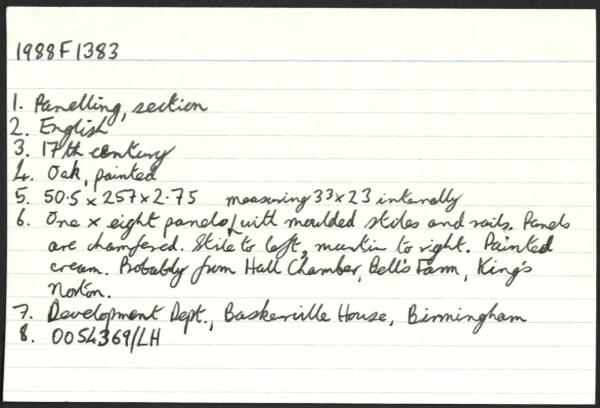 1988F1383
1. Panelling, section
2. English
3. 17th century
4. Oak, painted
5. 50.5 x 257 x 2.75 measuring 33 x 23 internally
6. One x eight panels, with moulded stiles and rails. Panels
are chamfered. Stile to left, muntin to right. Painted
cream. Probably from Hall Chamber, Bell's Farm, King's
Norton.
7. Development Dept., Baskerville House, Birmingham
8. 0054369/LH